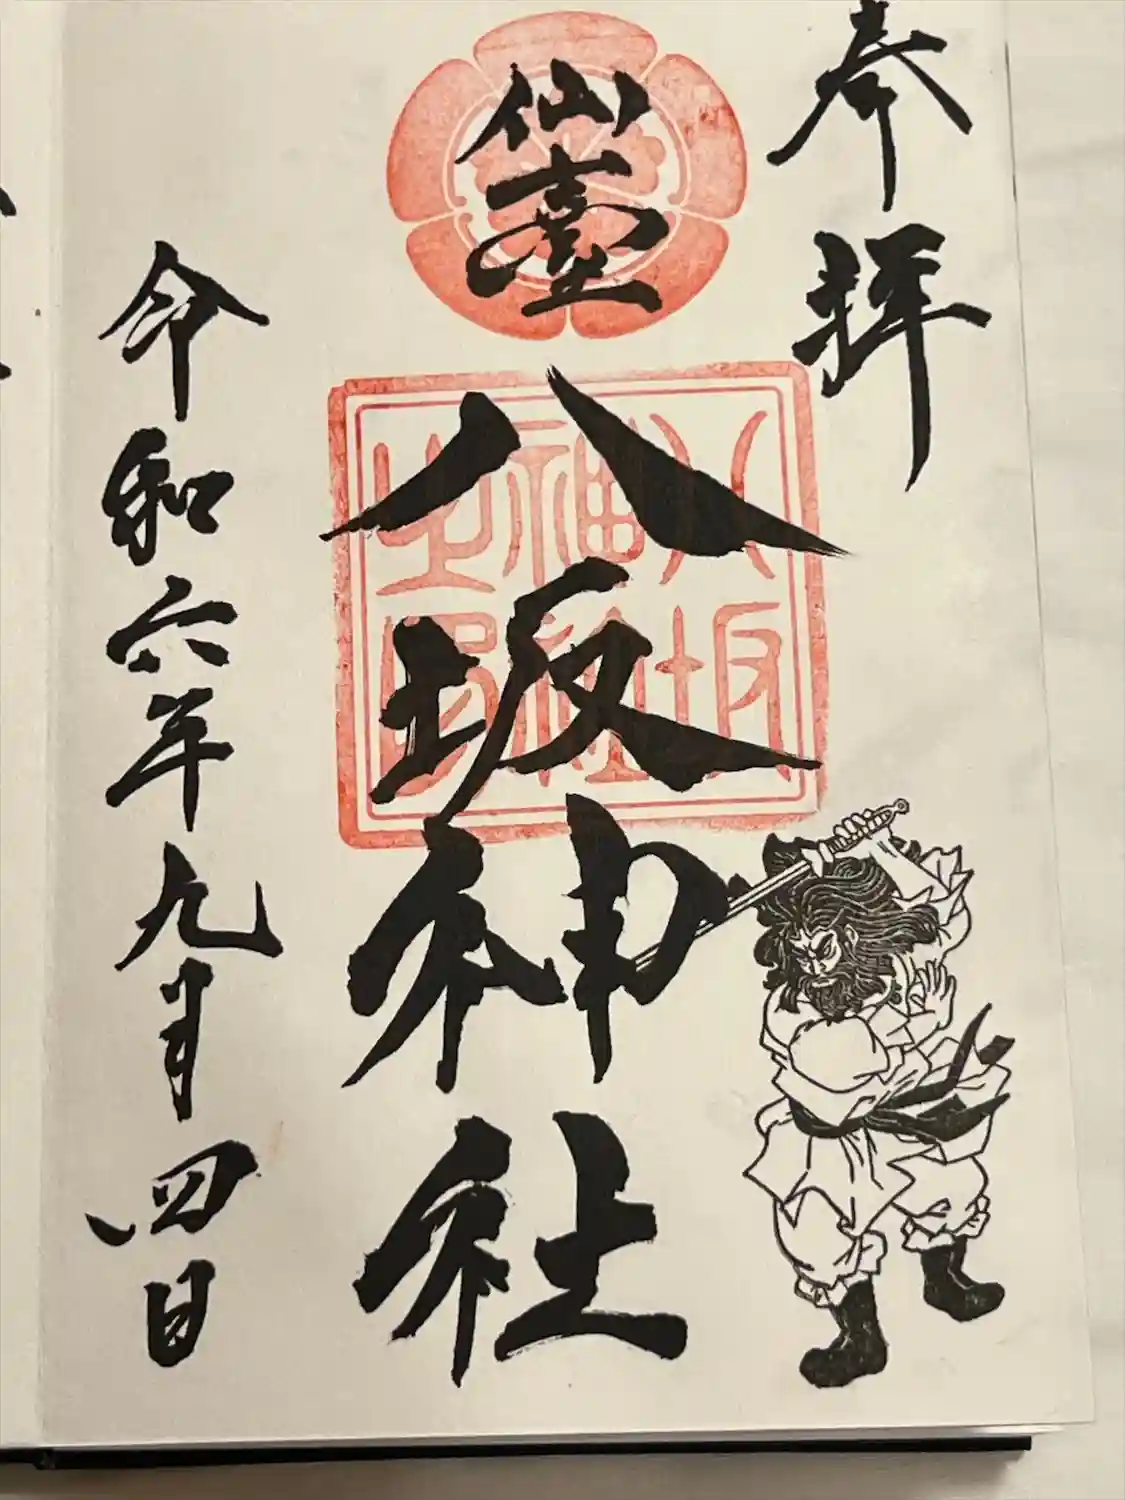 奉拝
仙臺
八坂神社
八坂
神社
之印
令和六年九月四日